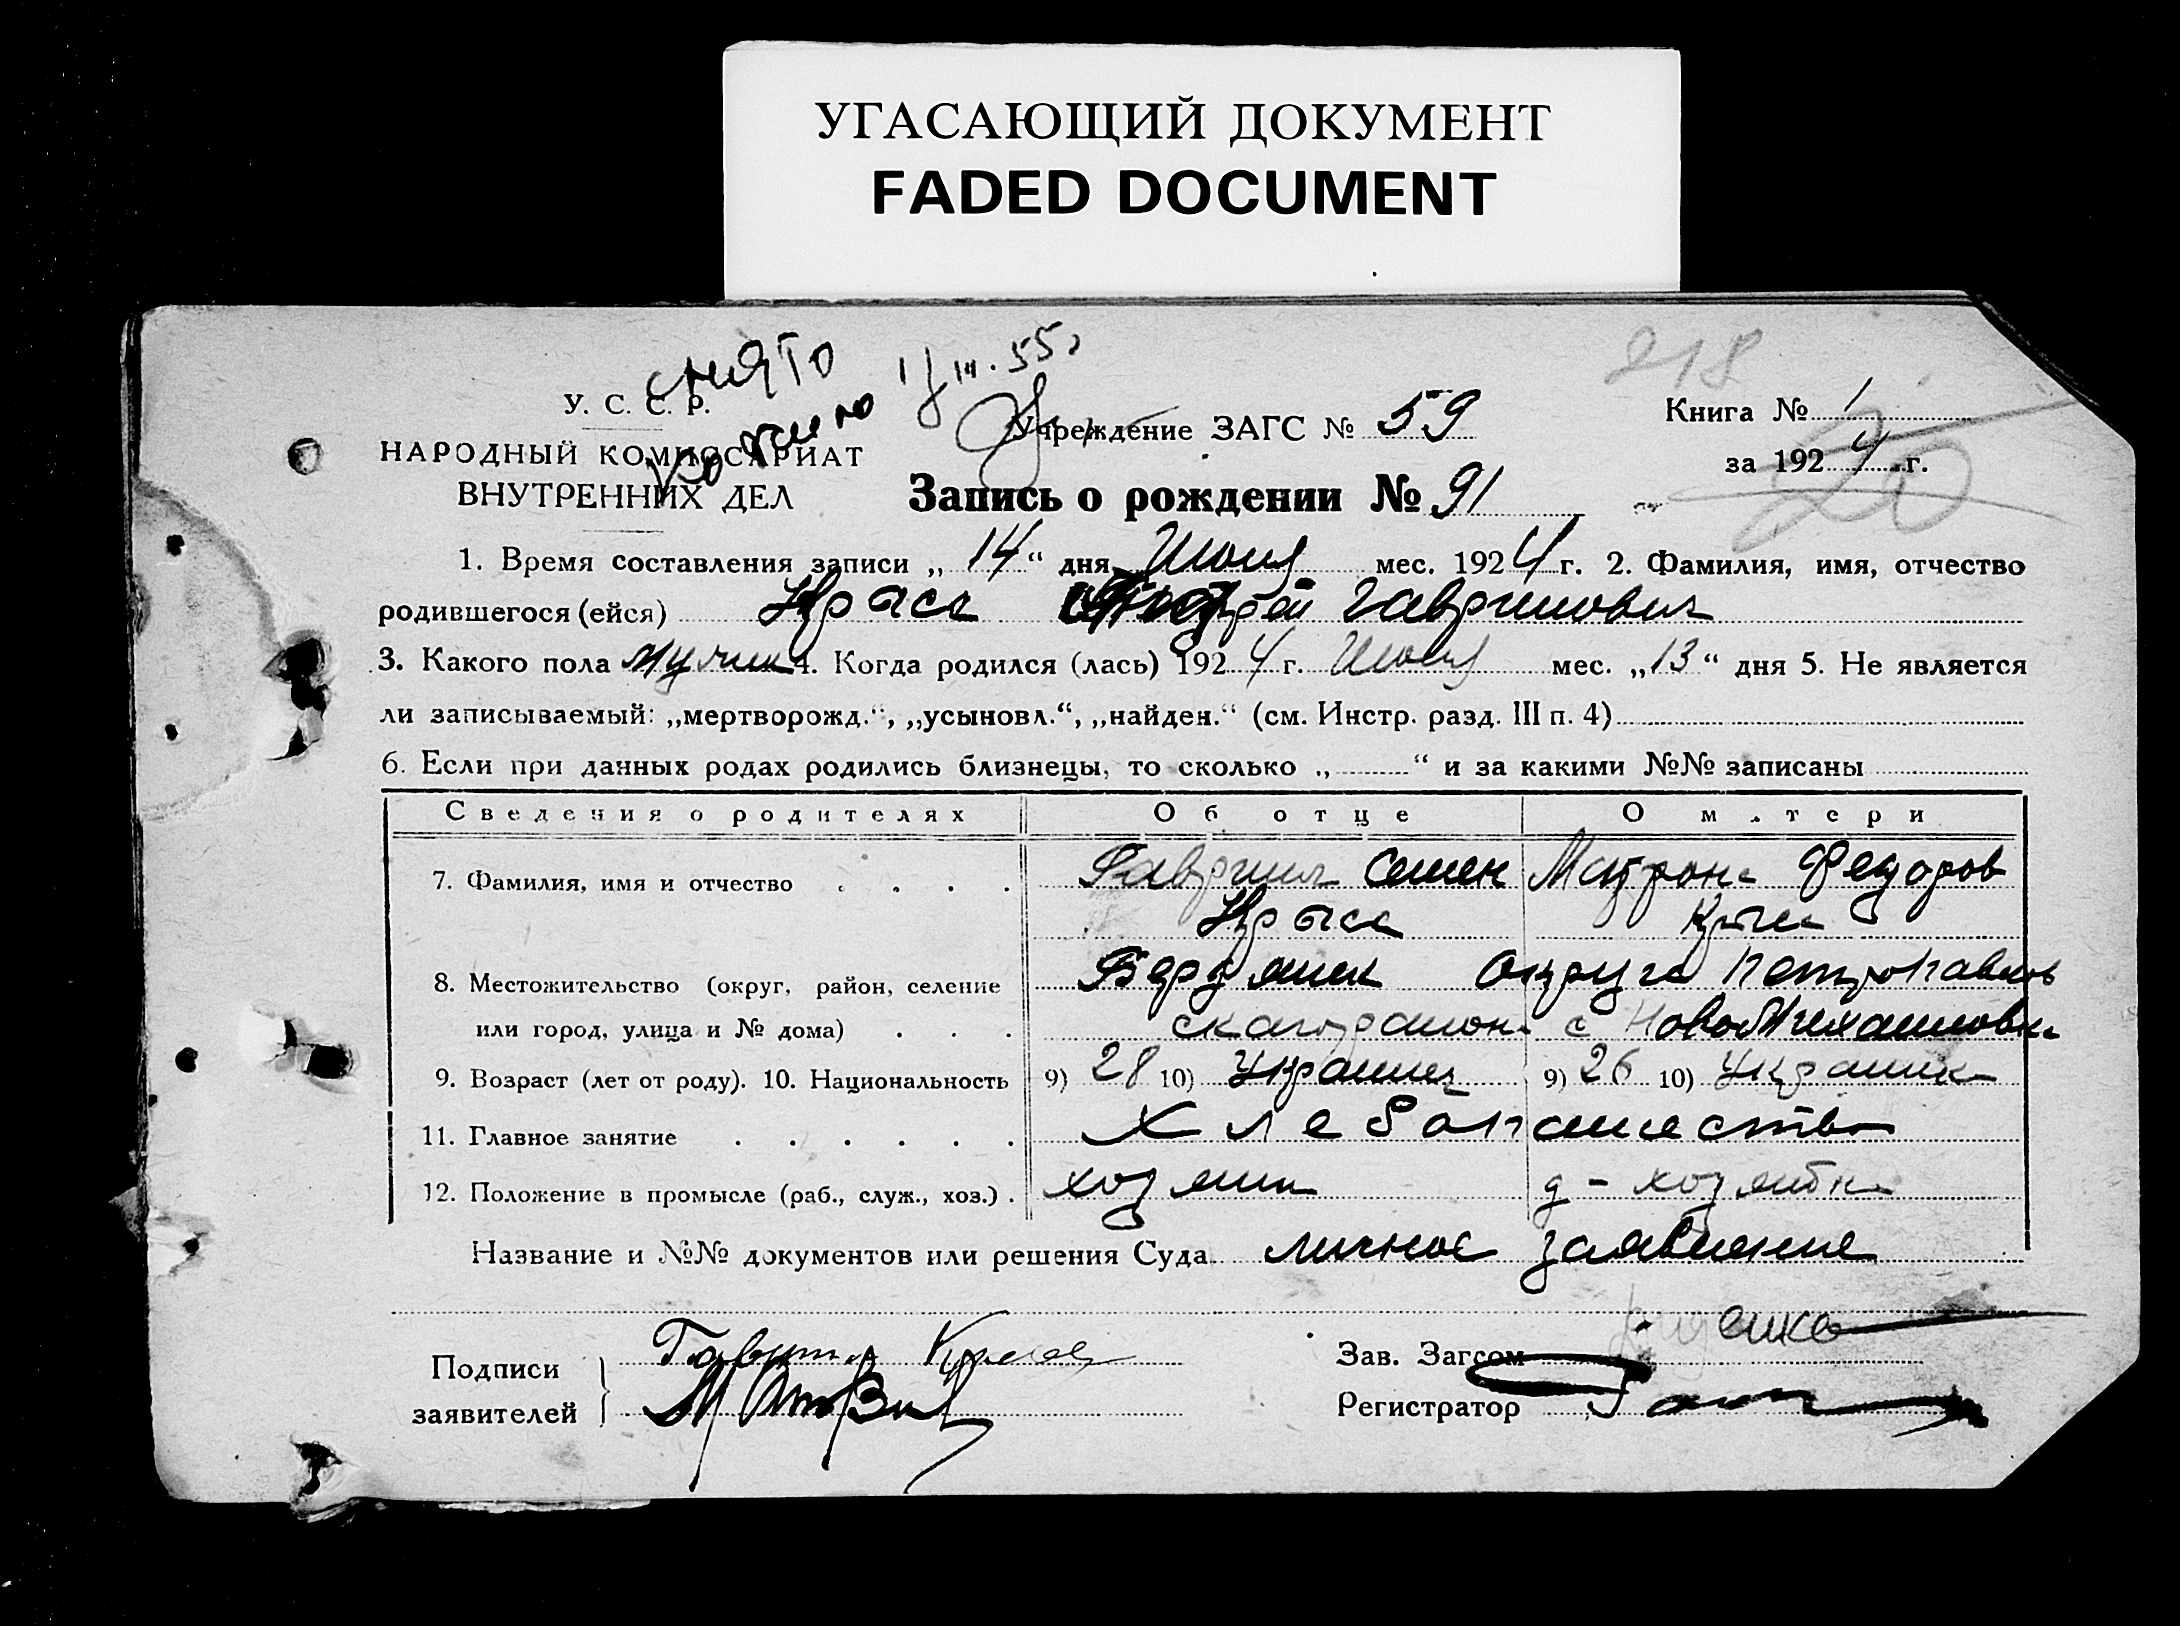 УГАСАЮЩИЙ ДОКУМЕНТ
FADED DOCUMENT
снято
копию 1/III.55г
218
У. С. С. Р.
НАРОДНЫЙ КОМИССАРИАТ
ВНУТРЕННИХ ДЕЛ
Учреждение ЗАГС № 59
Книга № 1
за 1924 г.
20
Запись о рождении № 91
1. Время составления записи „ 14 “ дня Июля мес. 1924 г. 2. Фамилия, имя, отчество
родившегося (ейся) Гаврилович
3. Какого пола мужчин 4. Когда родился (лась) 1924 г. Июля мес. „ 13 “ дня 5. Не является
ли записываемый: „мертворожд.“, „усыновл.“, „найден.“ (см. Инстр. разд. III п. 4)
6. Если при данных родах родились близнецы, то сколько „ “ и за какими №№ записаны
Сведения о родителях Об отце О матери
7. Фамилия, имя и отчество Гаврил Семен Матрона Федоров
Крыса Крыса
8. Местожительство (округ, район, селение Бердянск Округа Петропавлов
или город, улица и № дома) ского района с НовоМихайловка
9. Возраст (лет от роду). 10. Национальность 9) 28 10) Украинец 9) 26 10) Украинка
11. Главное занятие Хлебопашество
12. Положение в промысле (раб., служ., хоз.) хозяин д-хозяйка
Название и №№ документов или решения Суда личное заявление
Подписи
заявителей
Гаврил
Зав. Загсом
Регистратор